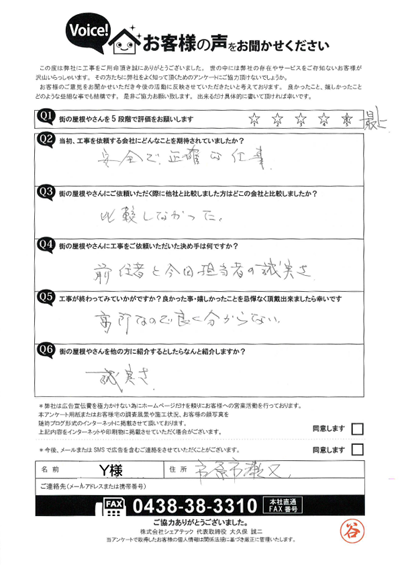 Voice!
お客様の声をお聞かせください
この度は弊社に工事をご用命頂き誠にありがとうございました。世の中には弊社の存在やサービスをご存知ないお客様が
沢山いらっしゃいます。その方たちに弊社をよく知って頂くためのアンケートにご協力頂けないでしょうか。
お客様のご意見をお聞かせいただき今後の活動に反映させていただきたいと考えております。良かったこと、嬉しかったこと
どのような些細な事でも結構です。是非ご協力お願い致します。出来るだけ具体的に書いて頂ければ幸いです。
Q1 街の屋根やさんを5段階で評価をお願いします ☆ ☆ ☆ ☆ ☆ 最上
Q2 当初、工事を依頼する会社にどんなことを期待されていましたか?
安全で、正確な仕事
Q3 街の屋根やさんにご依頼いただく際に他社と比較しました方はどこの会社と比較しましたか?
比較しなかった。
Q4 街の屋根やさんに工事をご依頼いただいた決め手は何ですか?
前任者と今回担当者の誠実さ
Q5 工事が終わってみていかがですか?良かった事・嬉しかったことを忌憚なく頂戴出来ましたら幸いです
高所なので良く分からない。
Q6 街の屋根やさんを他の方に紹介するとしたらなんと紹介しますか?
誠実さ
*弊社は広告宣伝費を極力かけない為にホームページだけを頼りにお客様への営業活動を行っております。
本アンケート用紙またはお客様宅の調査風景や施工状況、お客様の顔写真を
随時ブログ形式のインターネットに掲載させて頂いております。
上記内容をインターネットや印刷物に掲載させていただく場合がございます。 同意します
*今後、メールまたはSMSで広告を含むご連絡をさせていただくことがございます。 同意します
名前 Y様 住所 市原市瀬又
ご連絡先(メールアドレスまたは携帯番号)
FAX 0438-38-3310 本社直通 FAX番号
ご協力ありがとうございました。
株式会社シェアテック 代表取締役 大久保 誠二
当アンケートで取得したお客様の個人情報は関係法規に基づき厳正に管理いたします。
谷